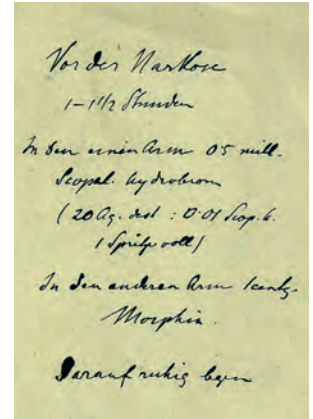 Vor der Narkose
1–1½ Stunden
In den einen Arm 05 mill.
Scopol. hydrobrom
(20 Aq. dest : 0·01 Scop. h.
1 Spritze voll)
In den anderen Arm 1 centg.
Morphin.
Darauf ruhig legen